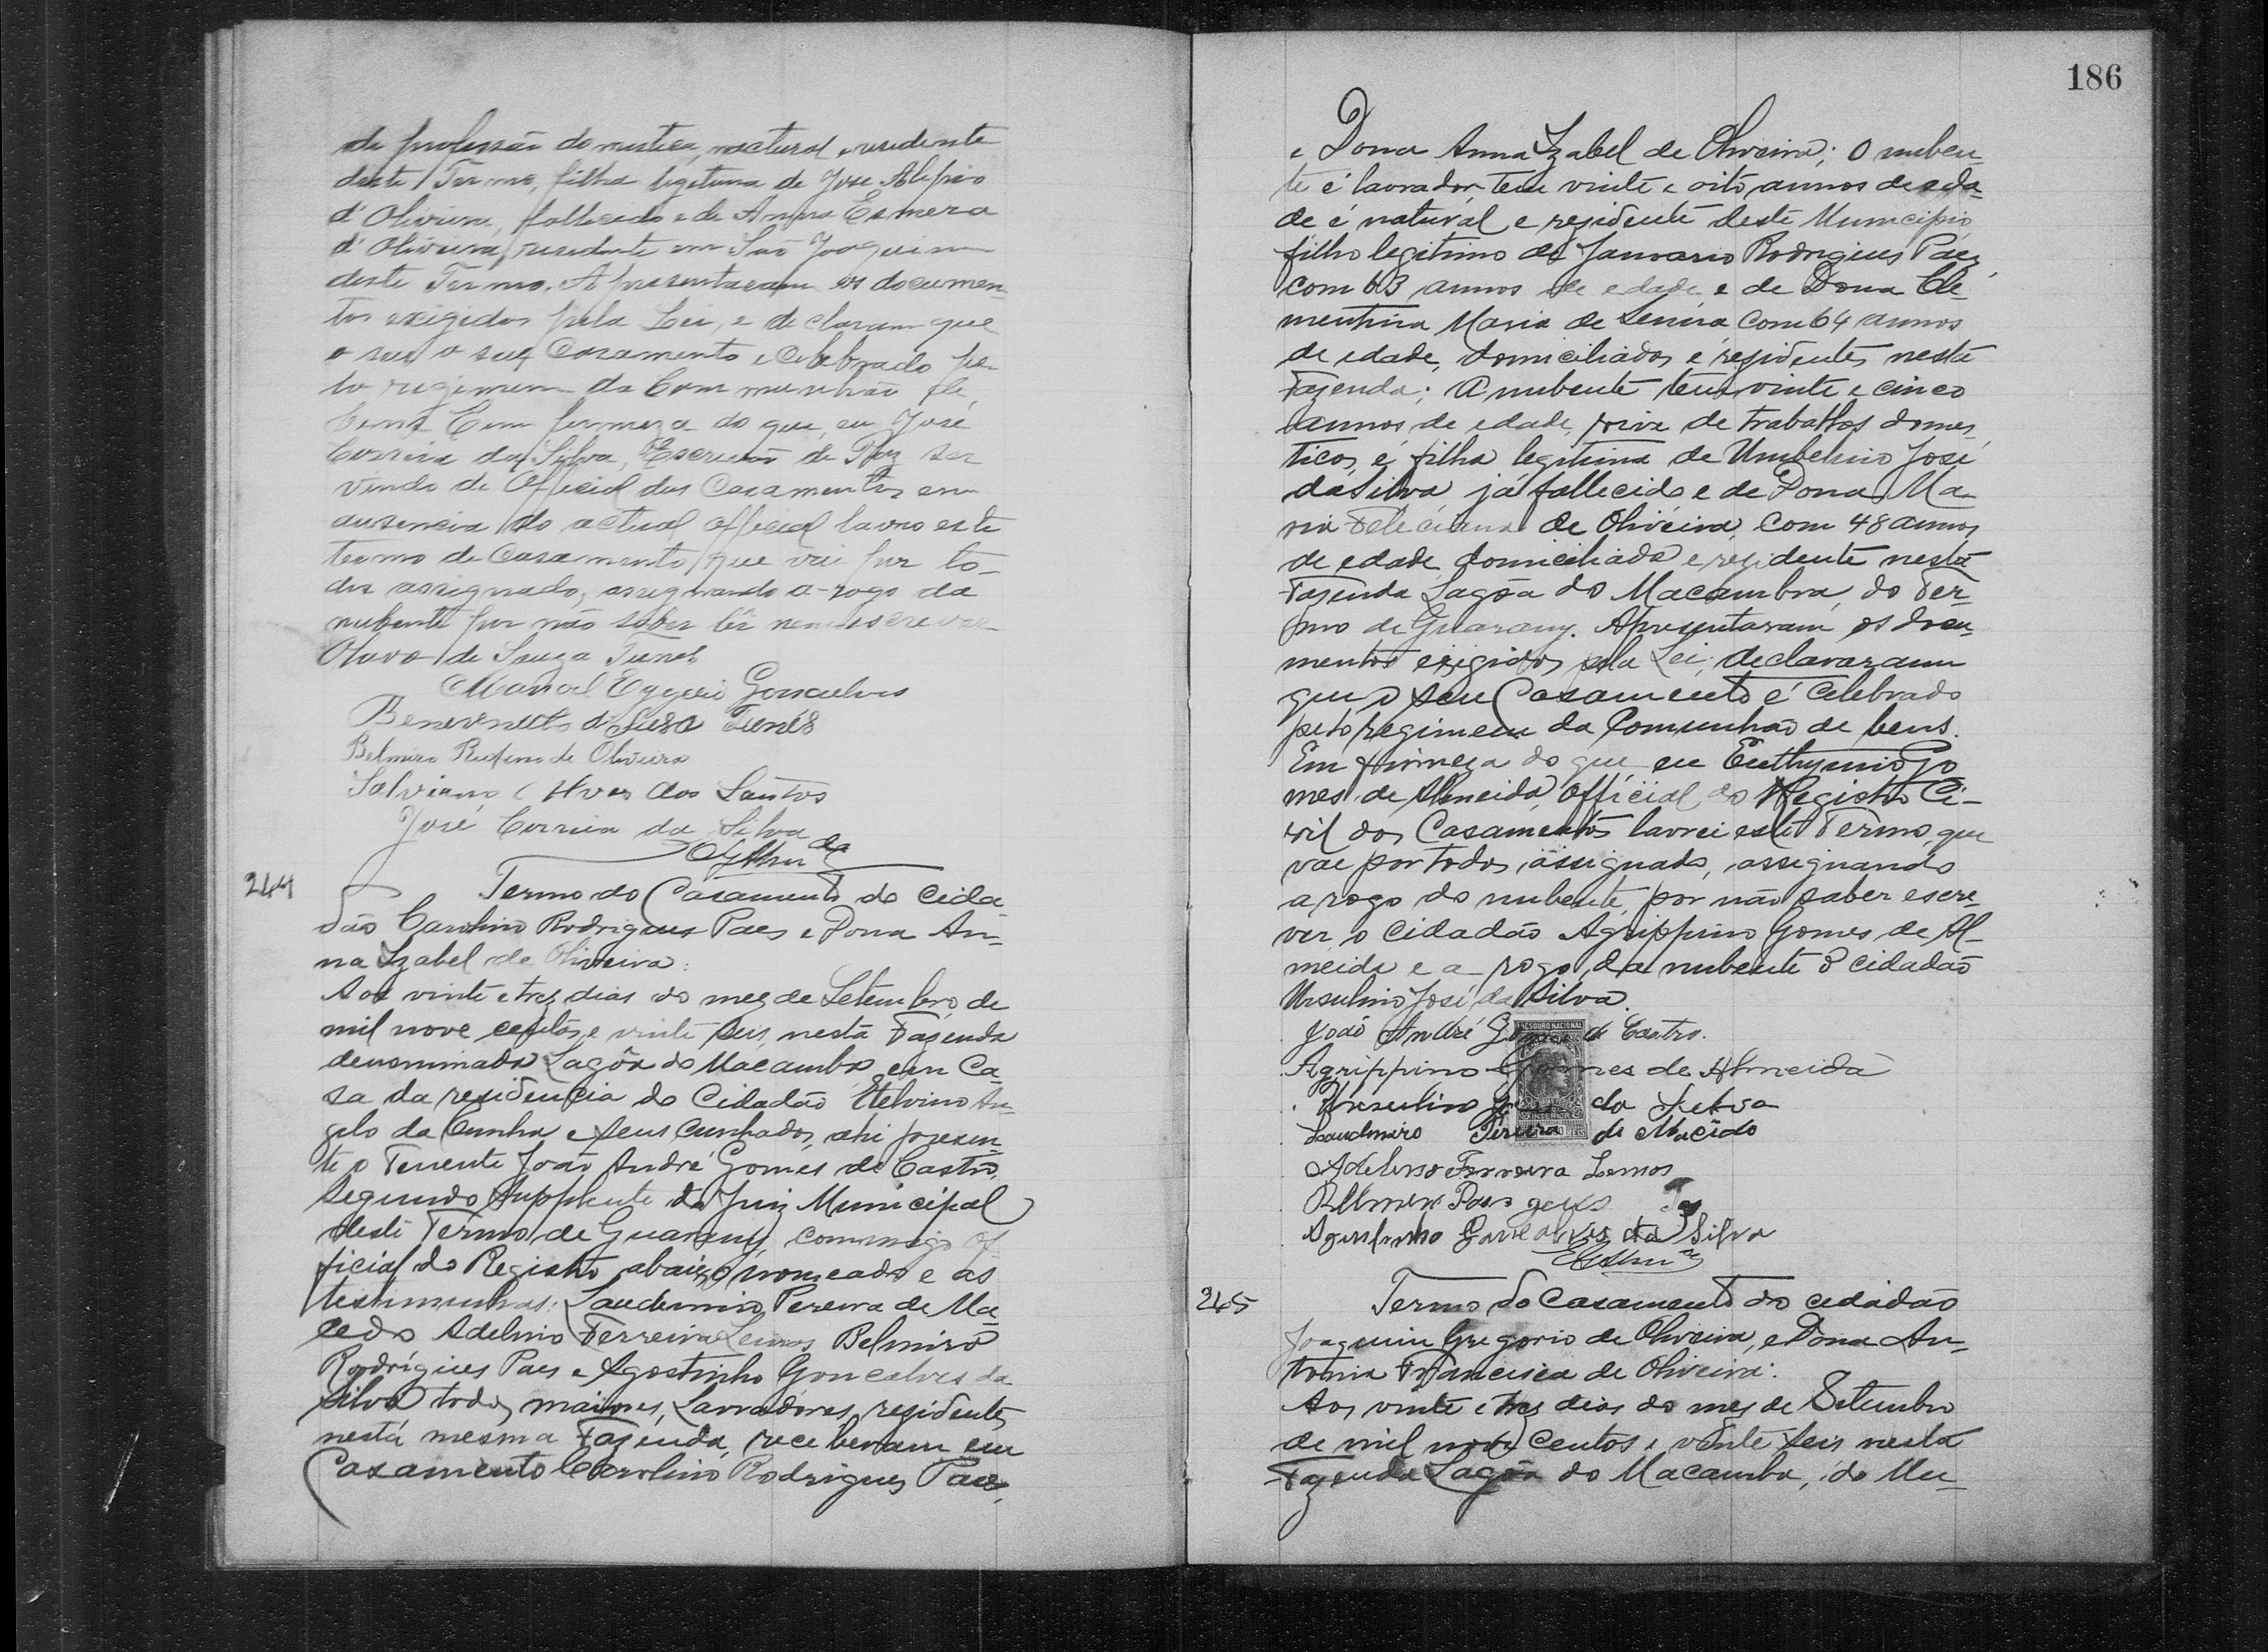 de profissão domestica, natural e residente
deste Termo, filha legitima de José Alipio
d'Oliveira, fallecido e de Anna Esmera
d'Oliveira, residente em São Joaquim
deste Termo. Apresentaram os documen-
tos exigidos pela Lei, e declaram que
o seu o seu Casamento e Celebrado pe-
lo regimem da Communhão de
bens. Em firmeza do que, eu José
Correia da Silva, Escrivão de Paz ser-
vindo de Official dos Casamentos em
ausencia do actual official lavro este
termo de Casamento, que vai por to-
dos assignado, assignando a-rogo da
nubente por não saber lêr nem escrever
Olavo de Souza Tunes
Manoel Egydio Gonsalves
Benevenuto de Susa Tunes
Belmiro Rufino de Oliveira
Salviano Alves dos Santos
José Correia da Silva
244
Termo do Casamento do cida-
dão Carolino Rodrigues Paes e Dona An-
na Izabel de Oliveira:
Aos vinte e trez dias do mez de Setembro de
mil nove centos e vinte seis, nesta Fazenda
denominada Lagôa do Macambra em Ca-
sa da residencia do Cidadão Etelvino An-
gelo da Cunha e seus cunhados, ahi presen-
te o Tenente João André Gomes de Castro,
segundo Supplente do Juiz Municipal
deste Termo de Guarany, commigo Of-
ficial do Registro abaixo nomeado e as
testimunhas: Laudemiro Pereira de Ma-
cedo Adelino Ferreira Lemos Belmiro
Rodrigues Paes e Agostinho Gonçalves da
Silva todos maiores, Lavradores, residentes
nesta mesma Fazenda, receberam em
Casamento Carolino Rodrigues Paes,
186
e Dona Anna Izabel de Oliveira; O nuben-
te é lavrador, tem vinte e oito annos de eda-
de é natural e residente deste Municipio,
filho legitimo de Januario Rodrigues Paes,
com 63 annos de edade e de Dona Cle-
mentina Maria de com 64 annos
de edade, domiciliados e residentes nesta
Fazenda; A nubente tem vinte e cinco
annos de edade, vive de trabalhos domes-
ticos, é filha legitima de Umbelino José
da Silva já fallecido e de Dona Ma-
ria Feleciana de Oliveira, com 48 annos
de edade domiciliada e residente nesta
Fazenda Lagôa do Macambra, do Ter-
mo de Guarany. Apresentaram os docu-
mentos exigidos pela Lei; declararam
que o seu Casamento é celebrado
pelo regimem da Comunhão de bens.
Em firmeza do que eu Euthymio Go
mes de Almeida, official do Registro Ci-
vil dos Casamentos lavrei este Termo, que
vae por todos assignado, assignando
a rogo do nubente, por não saber escre-
ver, o cidadão Agrippino Gomes de Al-
meida e a rogo da nubente o cidadão
Ursulino José da Silva.
João André Gomes de Castro.
Agrippino Gomes de Almeida
Ursulino José da Silva
Laudmiro Pereira de Macêdo
Adelino Ferreira Lemos
Agustinho Gonçalves da Silva
THESOURO NACIONAL
INTERIOR
REIS
245
Termo do Casamento do cidadão
Joaquim Gregorio de Oliveira, e Dona An-
tonia Francisca de Oliveira:
Aos vinte e tres dias do mez de Setembro
de mil nove centos e vinte seis nesta
Fazenda Lagôa do Macamba, do Mu-